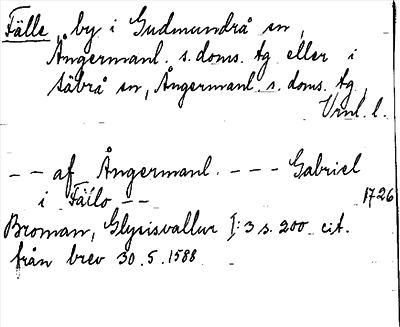 Fälle by i Gudmundrå sn,
Ångermanl. s. doms. tg eller i
Säbrå sn, Ångermanl. s. doms. tg,
Vrnl. l.
-- af Ångermanl. --- Gabriel
i Fällo --
1726
Broman, Glysisvallur I:3 s. 200 cit.
från brev 30.5.1588